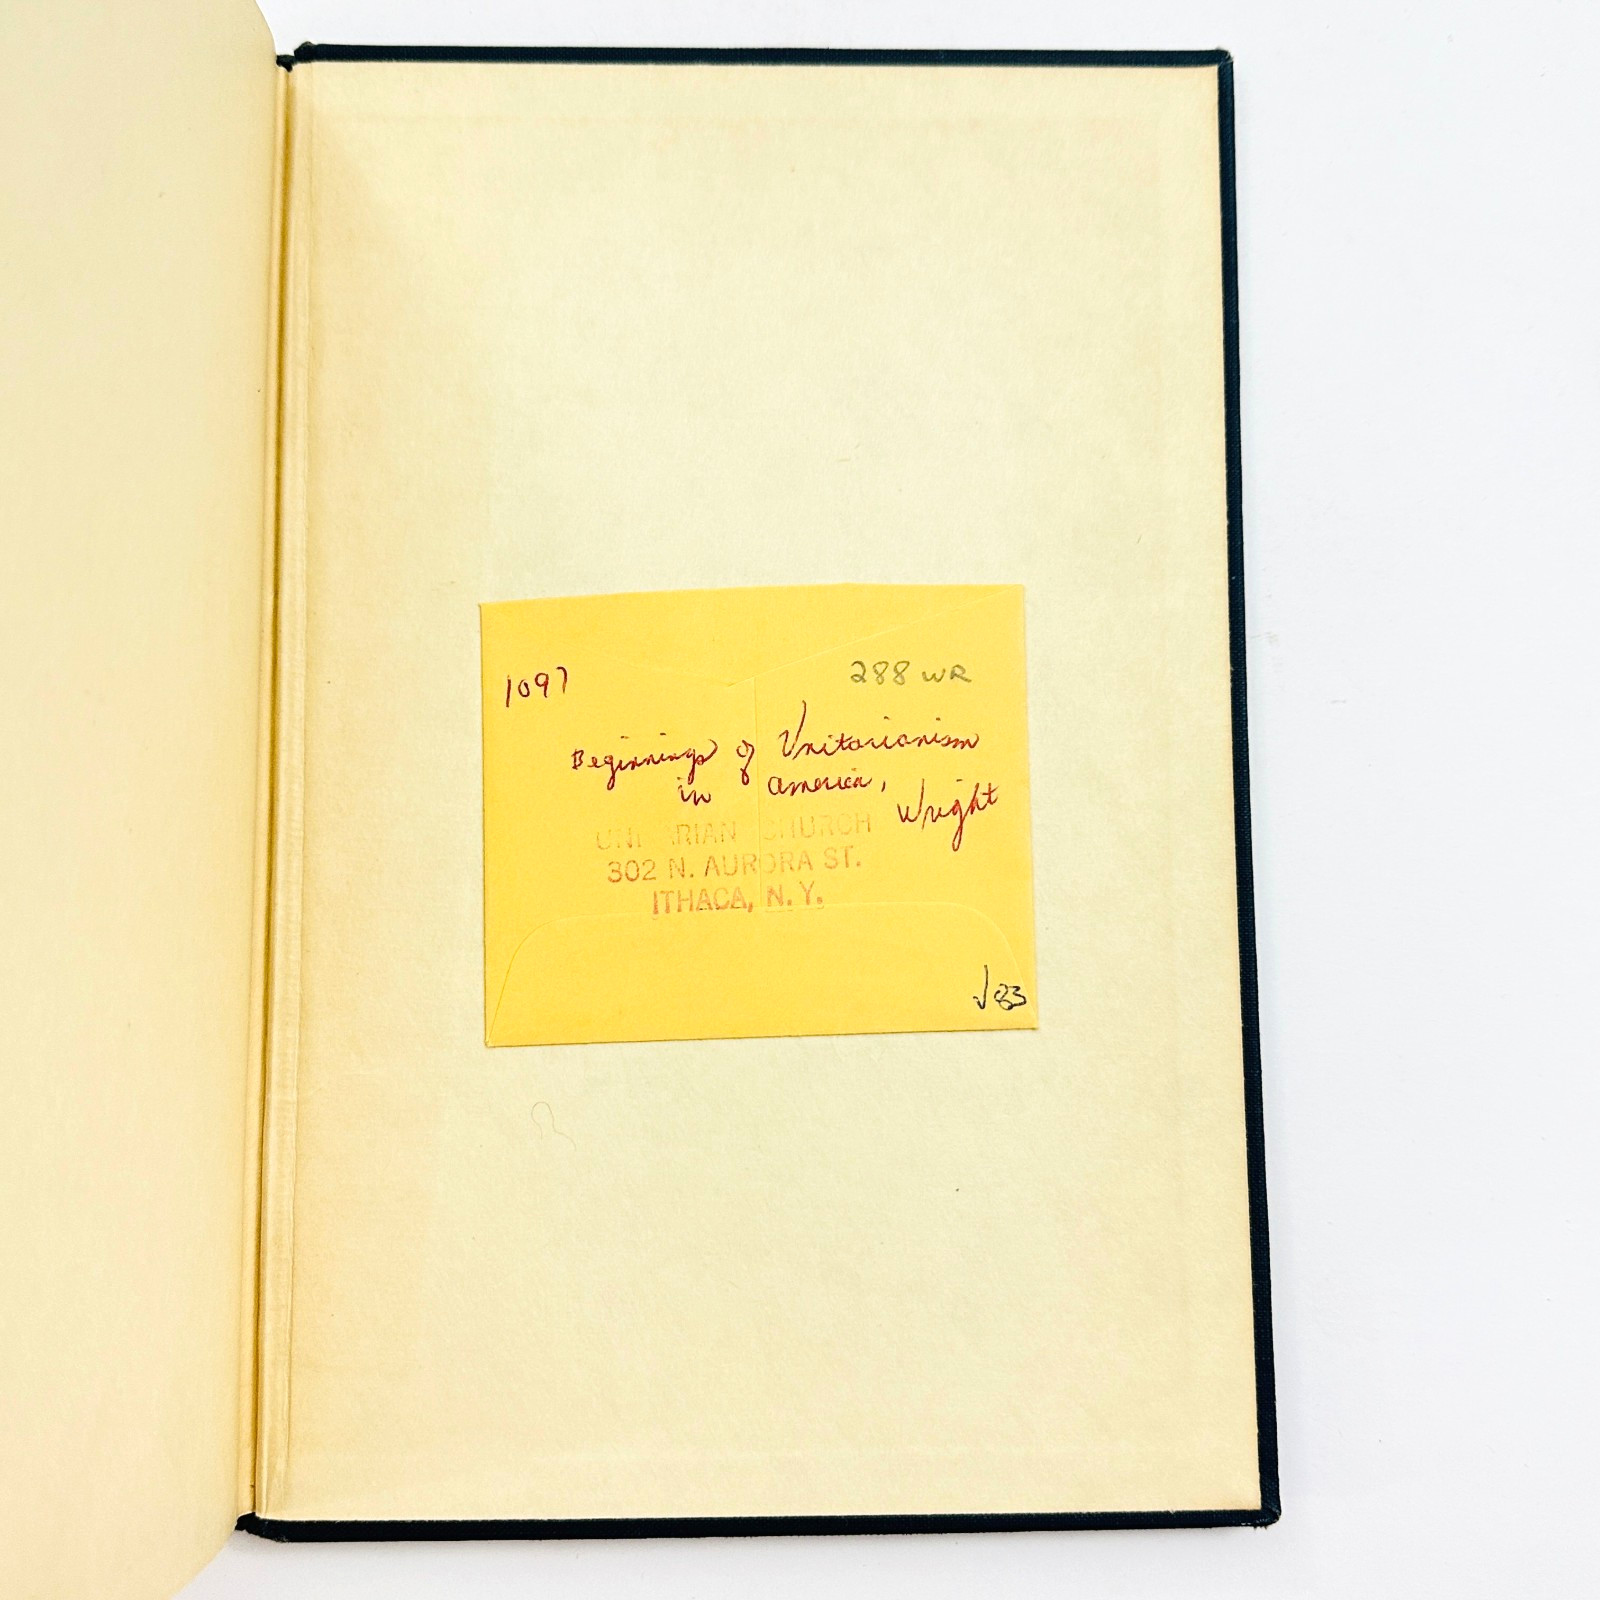 1097
288 WR
Beginnings of Unitarianism
in America,
Wright
UNITARIAN CHURCH
302 N. AURORA ST.
ITHACA, N.Y.
√83